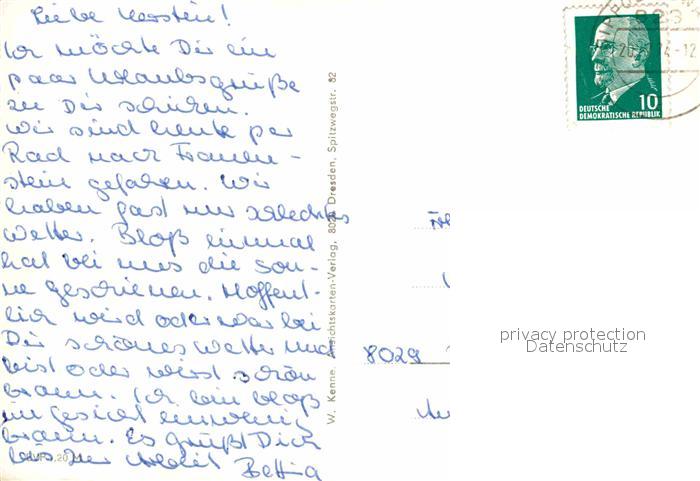 Liebe Kerstin!
Ich möchte Dir ein
paar Urlaubsgrüße
zu Dir schicken.
Wir sind heute per
Rad nach Frauen-
stein gefahren. Wir
haben fast nur schlechtes
Wetter. Bloß einmal
hat bei uns die Son-
ne geschienen. Hoffent-
lich wird oder war bei
Dir schönes Wetter und
bist oder wirst schön
braun. Ich bin bloß
im Gesicht ein wenig
braun. Es grüßt Dich
Bettina
W. Kenne, Ansichtskarten-Verlag, 8021 Dresden, Spitzwegstr. 52
DEUTSCHE
DEMOKRATISCHE REPUBLIK
10
8029
privacy protection
Datenschutz